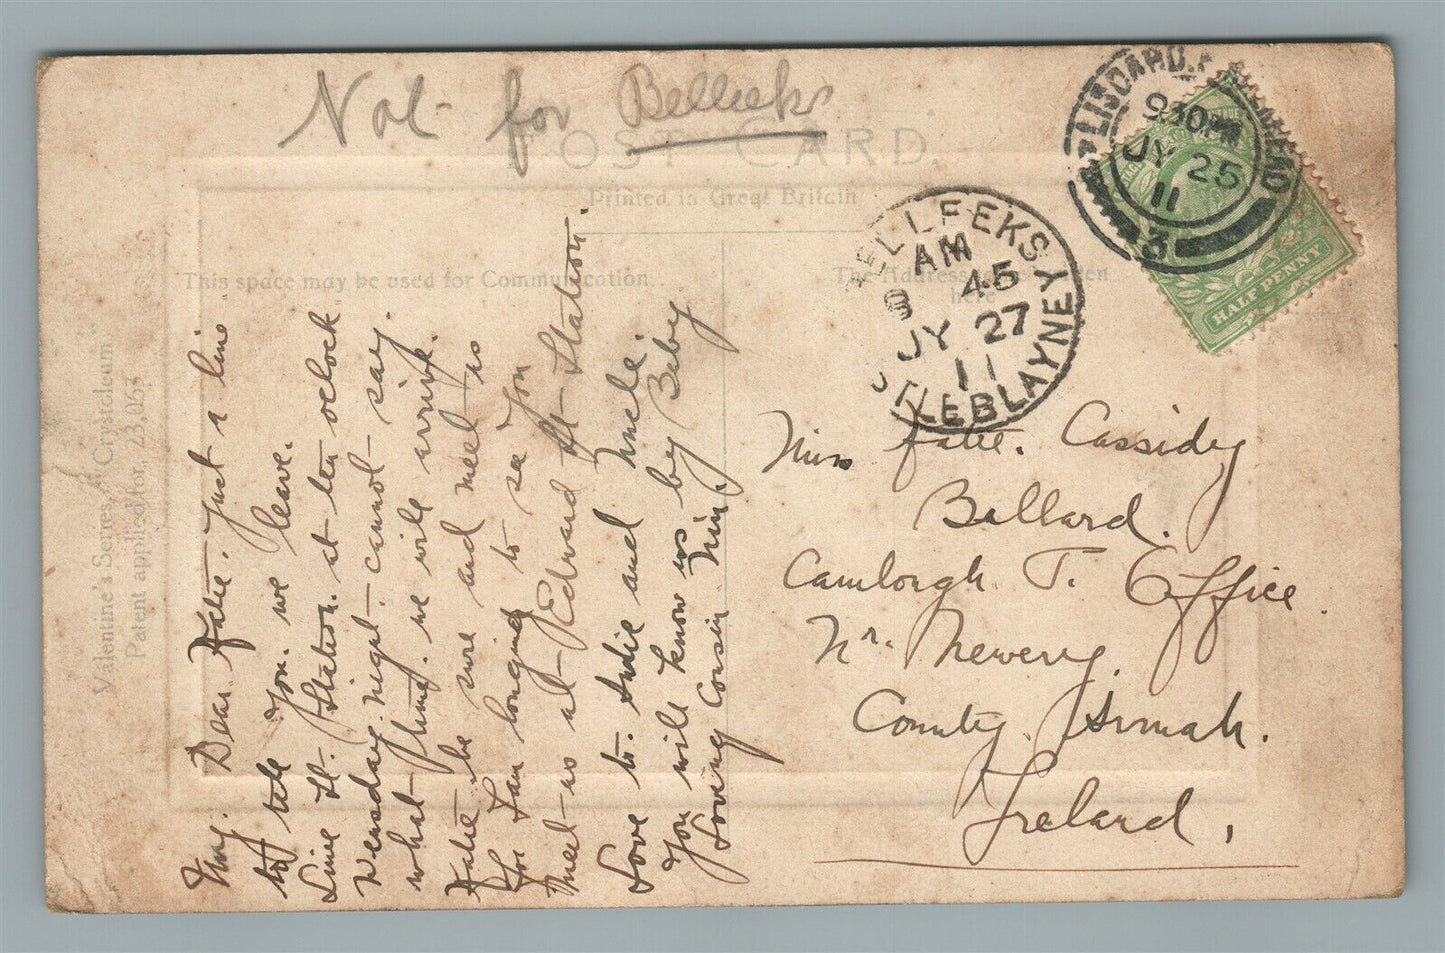 Not for Belleeks
POST CARD.
Printed in Great Britain
This space may be used for Communication
The Address
here
Valentine's Series, Crystoleum
Patent applied for, 23,063
LISCARD.
9 30PM
JY 25
11
3
HALF PENNY
BELLEEKS
AM
8 45
JY 27
11
STLEBLAYNEY
My. Dear Katie. Just a line
to tell you. we leave.
Lime St. Station. at ten oclock
Wensday. night. cannot say.
what time. we will arrive.
Katie be sure and meet us
for I am longing to see you
meet us at Edward St Station.
Love to. Susie and Uncle.
You will know us by Baby
Loving Cousin Min.
Miss Katie. Cassidy
Ballard.
Camlorgh T. Office.
Nr. Newerry.
County. Armah.
Ireland,